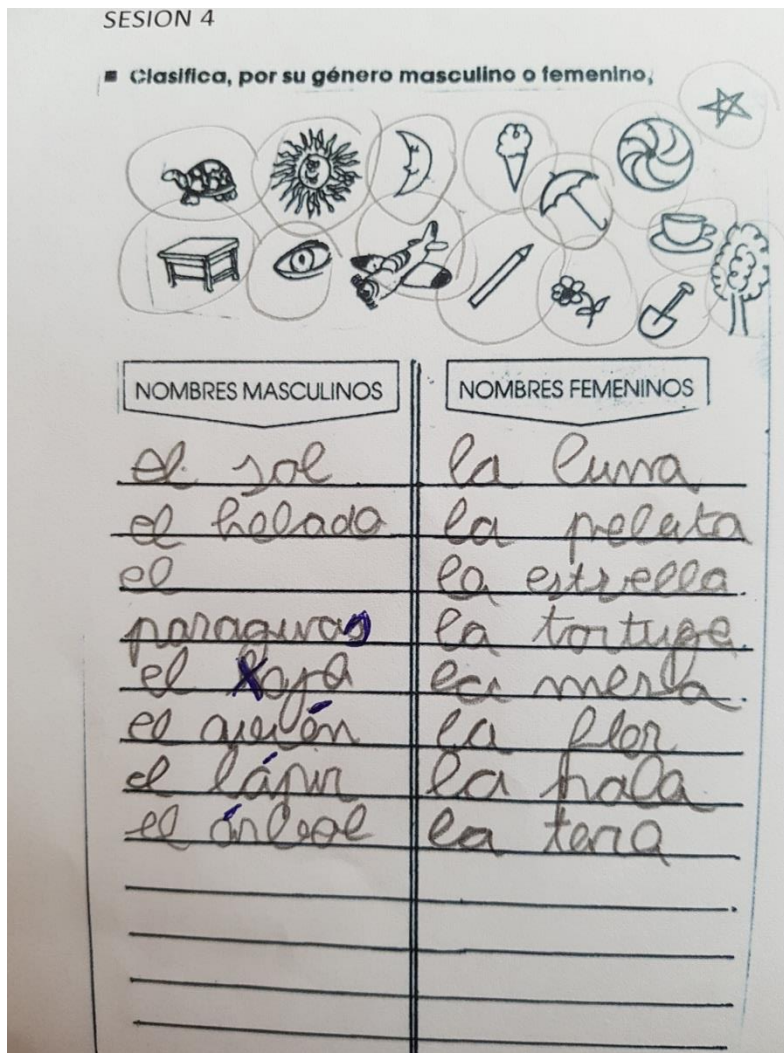 SESION 4
Clasifica, por su género masculino o femenino,
NOMBRES MASCULINOS NOMBRES FEMENINOS
el sol la luna
el helado la pelota
el la estrella
paraguas la tortuga
el ojo la mesa
el avión la flor
el lápiz la pala
el árbol la taza